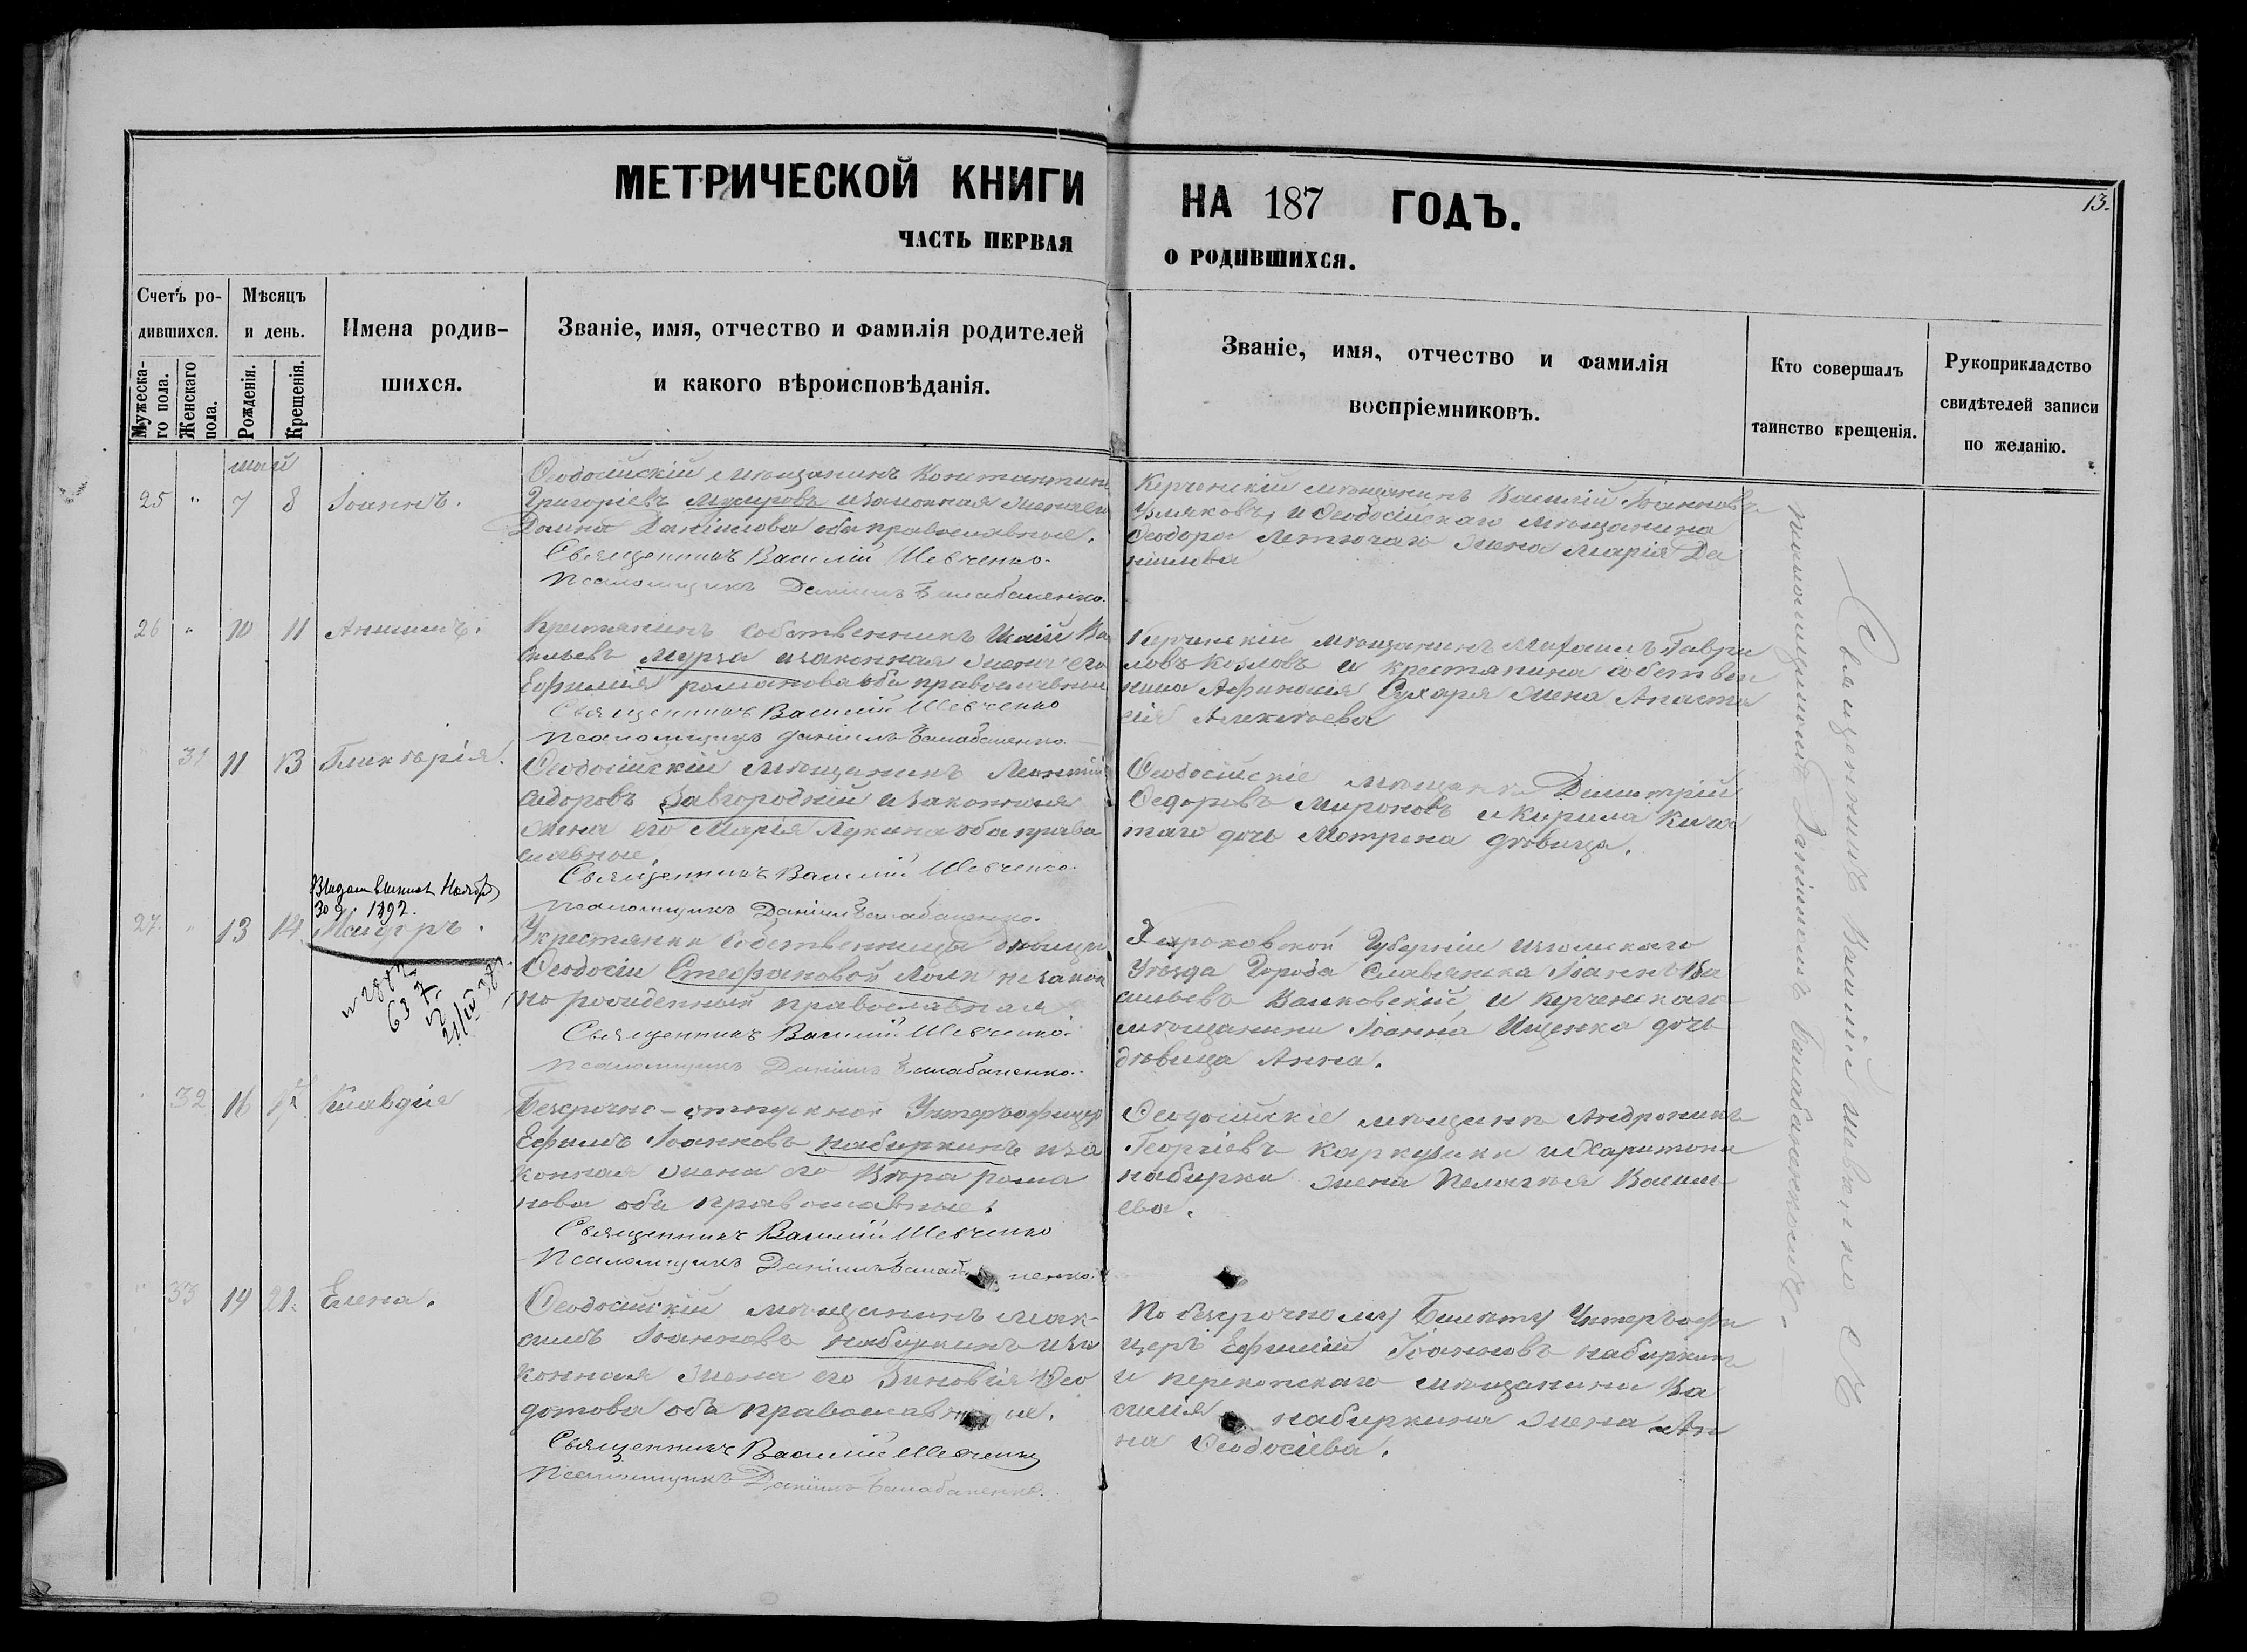 МЕТРИЧЕСКОЙ КНИГИ НА 187 ГОДЪ.
13.
ЧАСТЬ ПЕРВАЯ О РОДИВШИХСЯ.
Счетъ ро-
дившихся.
Мужеска-
го пола.
Женскаго
пола.
Мѣсяцъ
и день.
Рожденія.
Крещенія.
Имена родив-
шихся.
Званіе, имя, отчество и фамилія родителей
и какого вѣроисповѣданія.
Званіе, имя, отчество и фамилія
воспріемниковъ.
Кто совершалъ
таинство крещенія.
Рукоприкладство
свидѣтелей записи
по желанію.
май
25 " 7 8 Іоаннъ.
Ѳеодосійскій мѣщанинъ Константинъ
Григоріевъ и законная жена его
Даніилова оба православные.
Священникъ Василій Шевченко.
Псаломщикъ Даніилъ Балабаненко.
Керченскій мѣщанинъ Василій Іоанновъ
и Ѳеодосійскаго мѣщанина
Ѳеодора жена Марія Да
ніилова
26 " 10 11
Крестянинъ собственникъ Ва
сильевъ Мурза и законная жена его
Ефимія романова оба православные
Священникъ Василій Шевченко
Псаломщикъ Даніилъ Балабаненко.
Керченскій мѣщанинъ Михаилъ Гаври
ловъ Козловъ и крестянина собствен
ника Сухаря жена Анаста
сія
31 11 13 Гликерія.
Ѳеодосійскій мѣщанинъ
сидоровъ Завгородній и законная
жена его Марія Лукина оба право
славные.
Священникъ Василій Шевченко.
Псаломщикъ Даніилъ Балабаненко.
Ѳеодосійскіе мѣщане Димитрій
Ѳедоровъ Мироновъ и Кирила
дочь Мотрона дѣвица.
30 1892.
27. " 13 14
21/IV 38
У крестянки собственницы дѣвицы
Ѳеодосіи Стефановой незакон
но рожденный православная
Священникъ Василій Шевченко.
Псаломщикъ Даніилъ Балабаненко.
Харьковской Губерніи изюмскаго
Уѣзда Города Славянска Іоаннъ Ва
сильевъ Валковскій, и Керченскаго
мѣщанина Іоанна Ищенка дочь
дѣвица Анна.
32 16 Клавдія
Безсрочно-отпускной Унтеръофицеръ
Ефимъ Іоанновъ набиркинъ и за
конная жена его Вѣра рома
нова оба православные.
Священникъ Василій Шевченко
Псаломщикъ Даніилъ Балабаненко.
Ѳеодосійскіе мѣщане Андроникъ
Георгіевъ и Харитона
набирки жена Пелагея Василі
ева.
33 19 21. Елена.
Ѳеодосійскій мѣщанинъ мак-
симъ Іоанновъ набиркинъ и за
конная жена его Зиновія Ѳео
дотова оба православные.
Священникъ Василій Шевченко
Псаломщикъ Даніилъ Балабаненко.
По безсрочному Билету Унтеръофи
церъ Ефимій Іоанновъ набиркинъ
и перекопскаго мѣщанина Ва
силія набиркина жена Ан
на Ѳеодосіева.
Священникъ Василій Шевченко съ
псаломщикомъ Даніиломъ Балабаненкомъ.